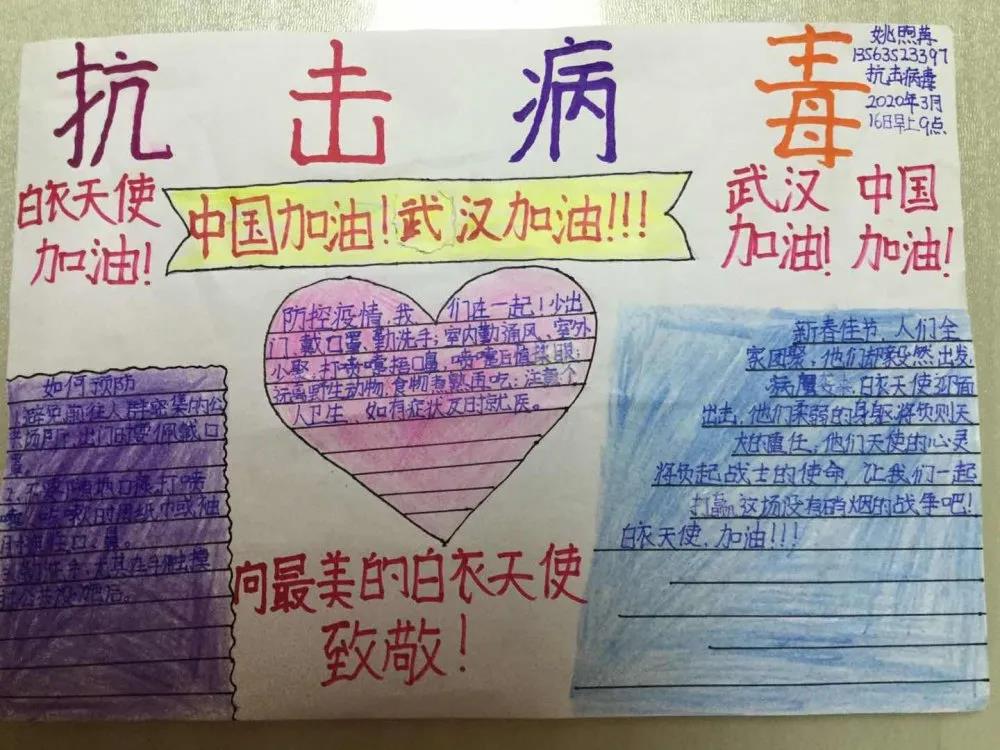 抗击病毒
姚照苒
13563523397
抗击病毒
2020年3月
16日早上9点
白衣天使
加油!
中国加油!武汉加油!!!
武汉
加油!
中国
加油!
防控疫情,我们在一起!少出
门,戴口罩,勤洗手;室内勤通风,室外
少聚,打喷嚏捂口鼻,喷嚏后值揉眼;
远离野生动物,食物煮熟再吃;注意个
人卫生。如有症状及时就医。
如何预防
1.避免前往人群密集的公
共场所,出门时要佩戴口
罩。
2.不要随地口痰,打喷
嚏、咳嗽时用纸巾或袖
肘掩住口、鼻。
新春佳节,人们全
家团聚,他们却毅然出发,
病魔袭来,白衣天使迎面
出击,他们柔弱的身躯将负则天
大的重任,他们天使的心灵
将负起战士的使命,让我们一起
打赢这场没有硝烟的战争吧!
白衣天使,加油!!!
向最美的白衣天使
致敬!